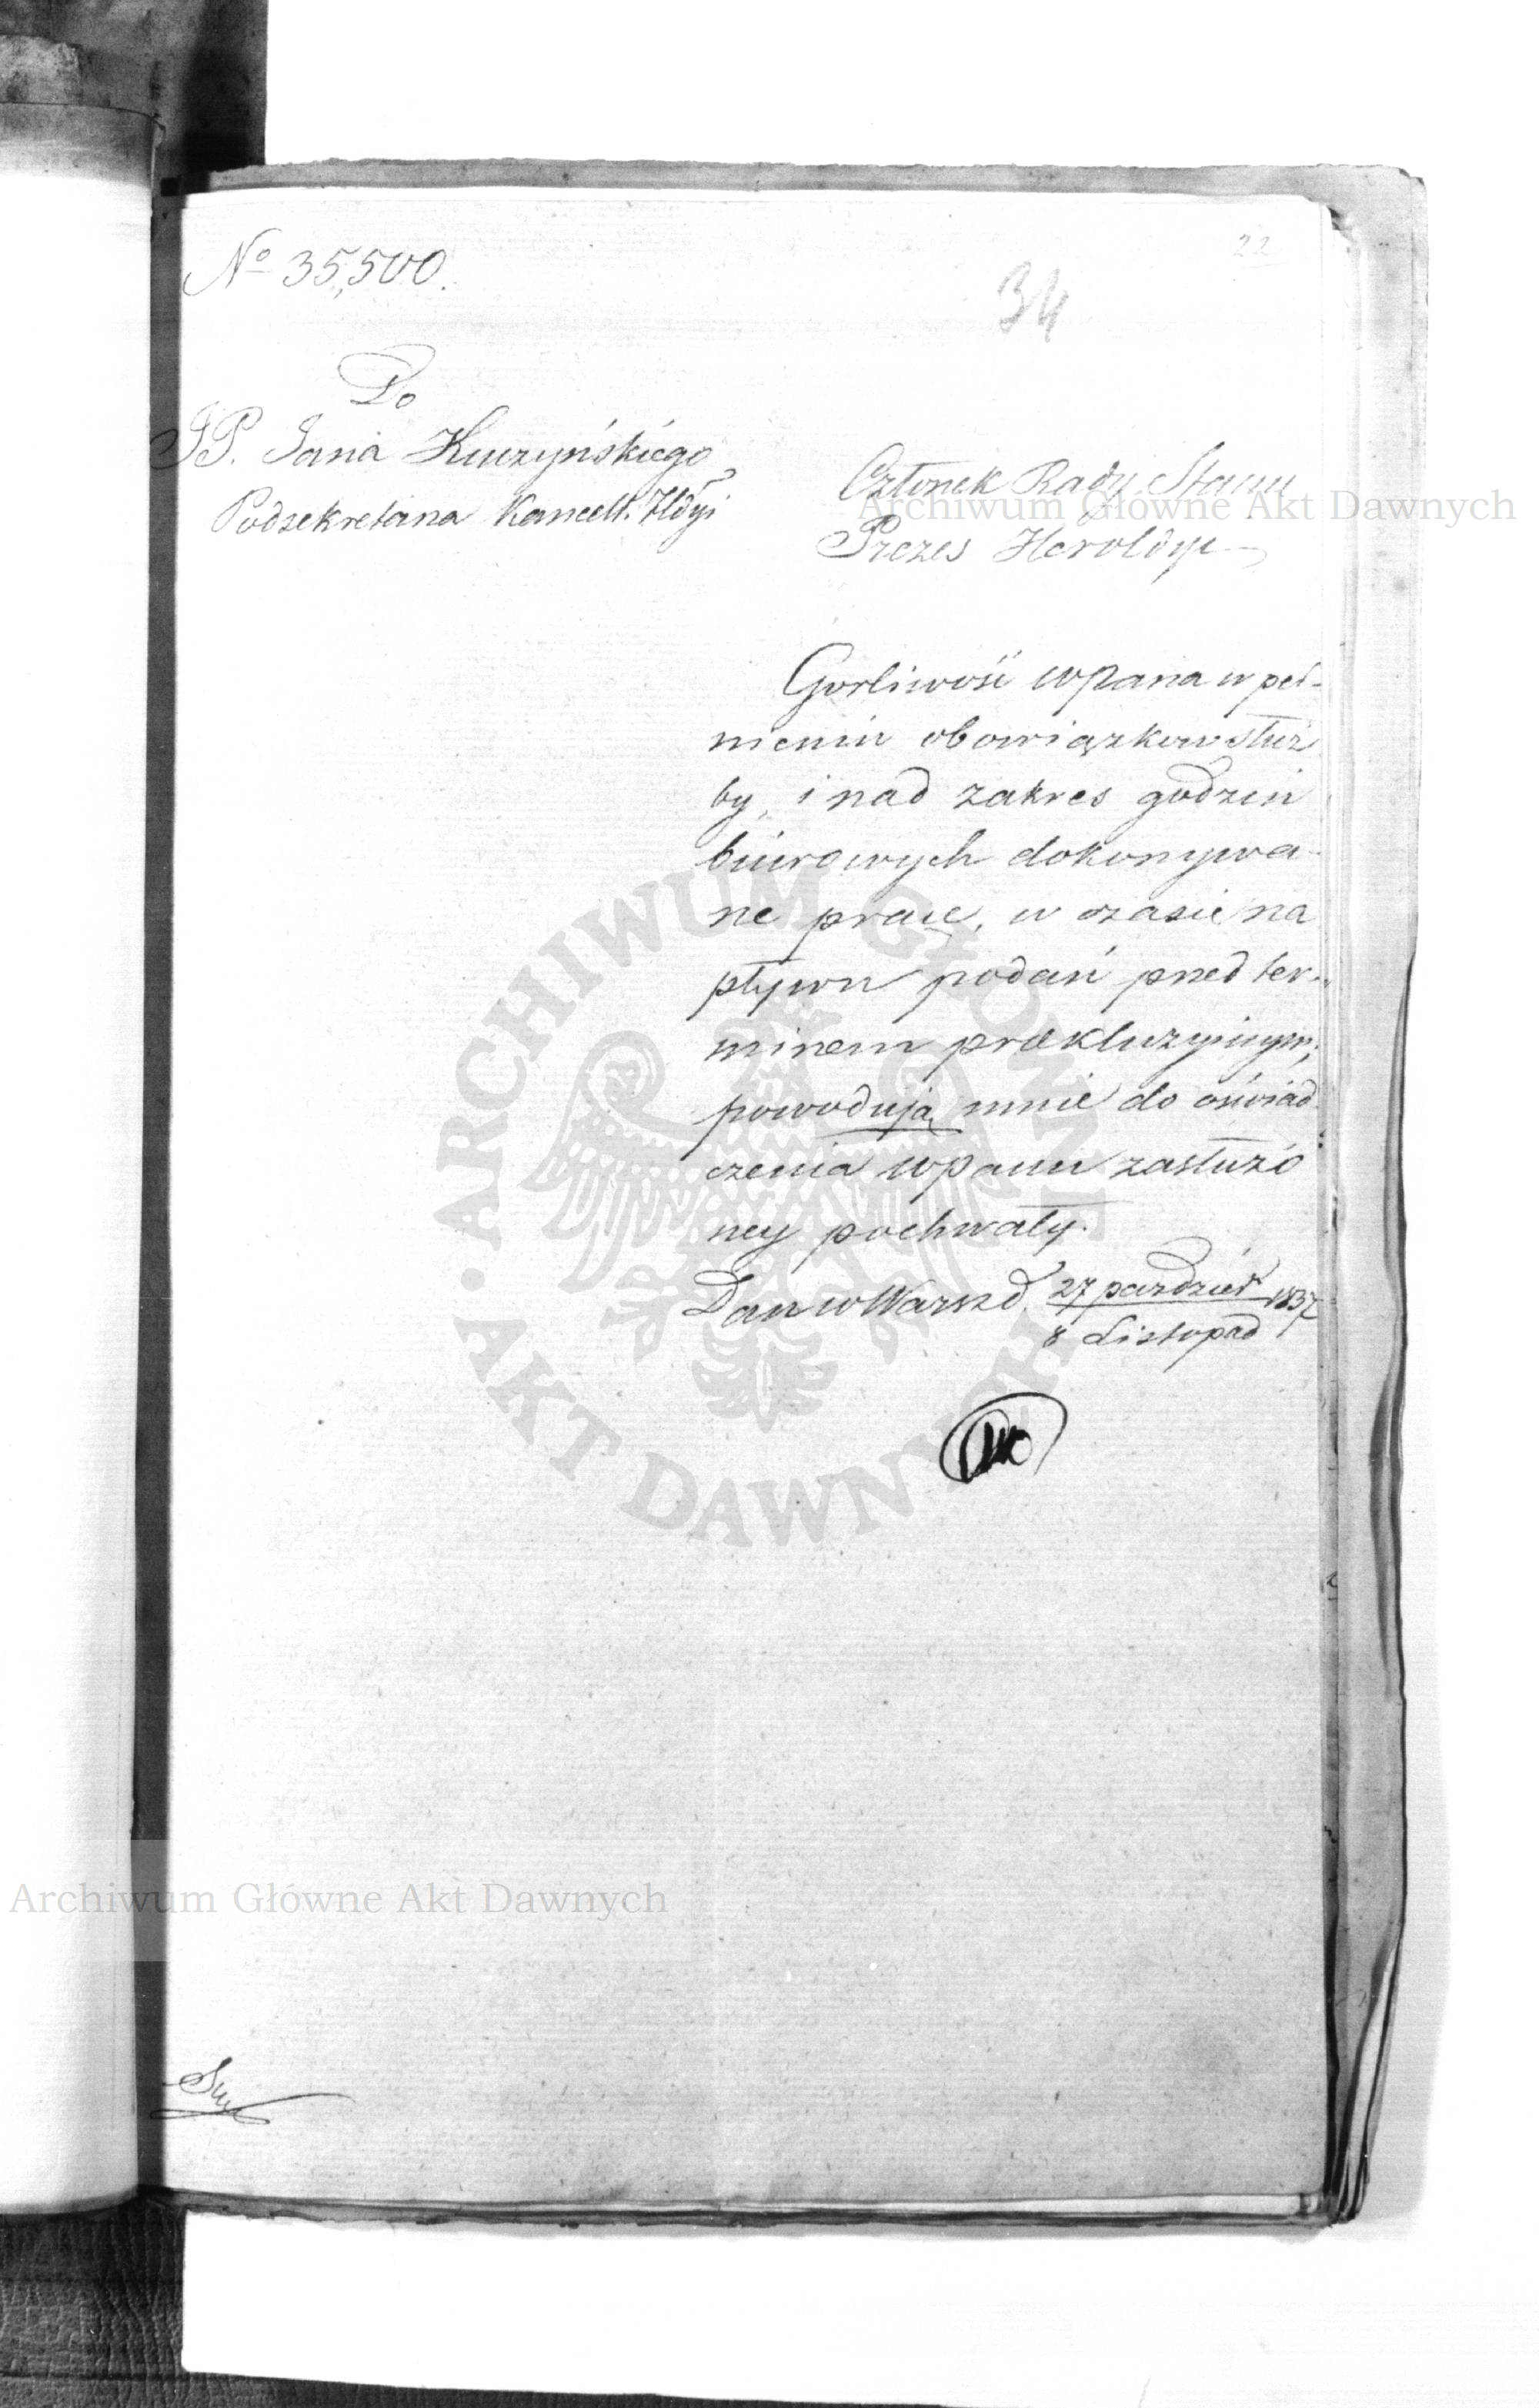 22
34
No 35,500.
Do
JP. Jana Kuczyńskiego
Podsekretarza Kancell. Hldyi
Członek Rady Stanu
Prezes Heroldyi
Gorliwość wpana w peł-
nieniu obowiązków służ
by, i nad zakres godzin
biurowych dokonywa-
ne prace, w czasie na
pływu podań przed ter-
minem prekluzyinym;
powodują mnie do oświad
czenia wpanu zasłużo
ney pochwały.
Dan w Warsz d. 27 paździer 1837
8 Listopad
Archiwum Główne Akt Dawnych
ARCHIWUM GŁÓWNE AKT DAWNYCH
Archiwum Główne Akt Dawnych